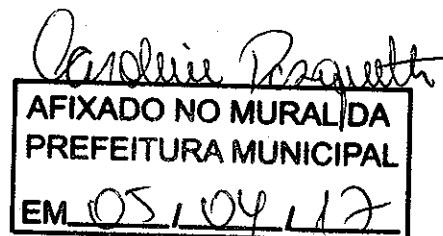 Caroline Pasquetti
AFIXADO NO MURAL DA
PREFEITURA MUNICIPAL
EM 05 / 04 / 17